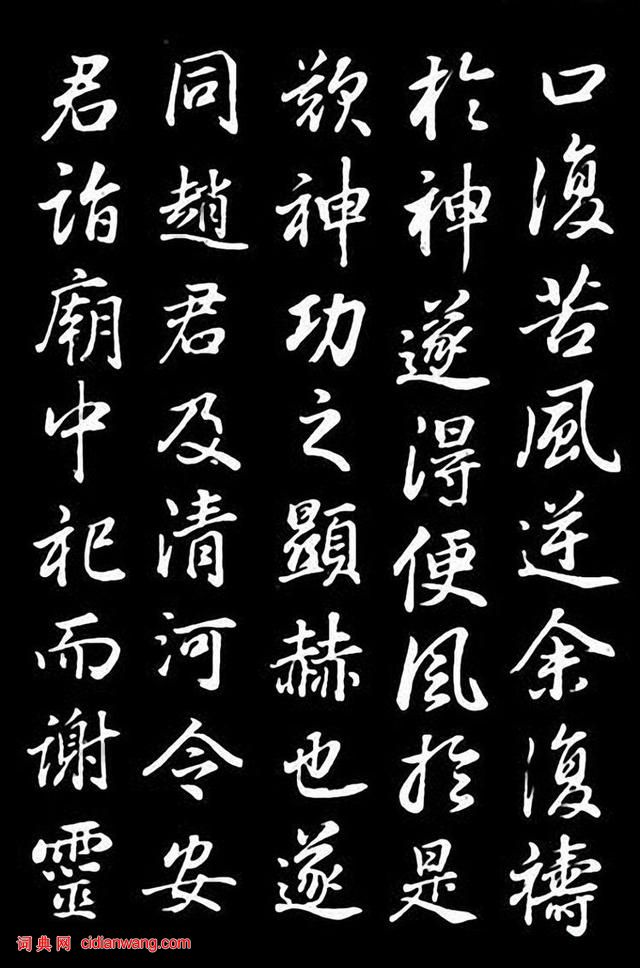 口復苦風逆余復禱
於神遂得便風於是
歎神功之顯赫也遂
同趙君及清河令安
君詣廟中祀而謝靈
词典网 cidianwang.com